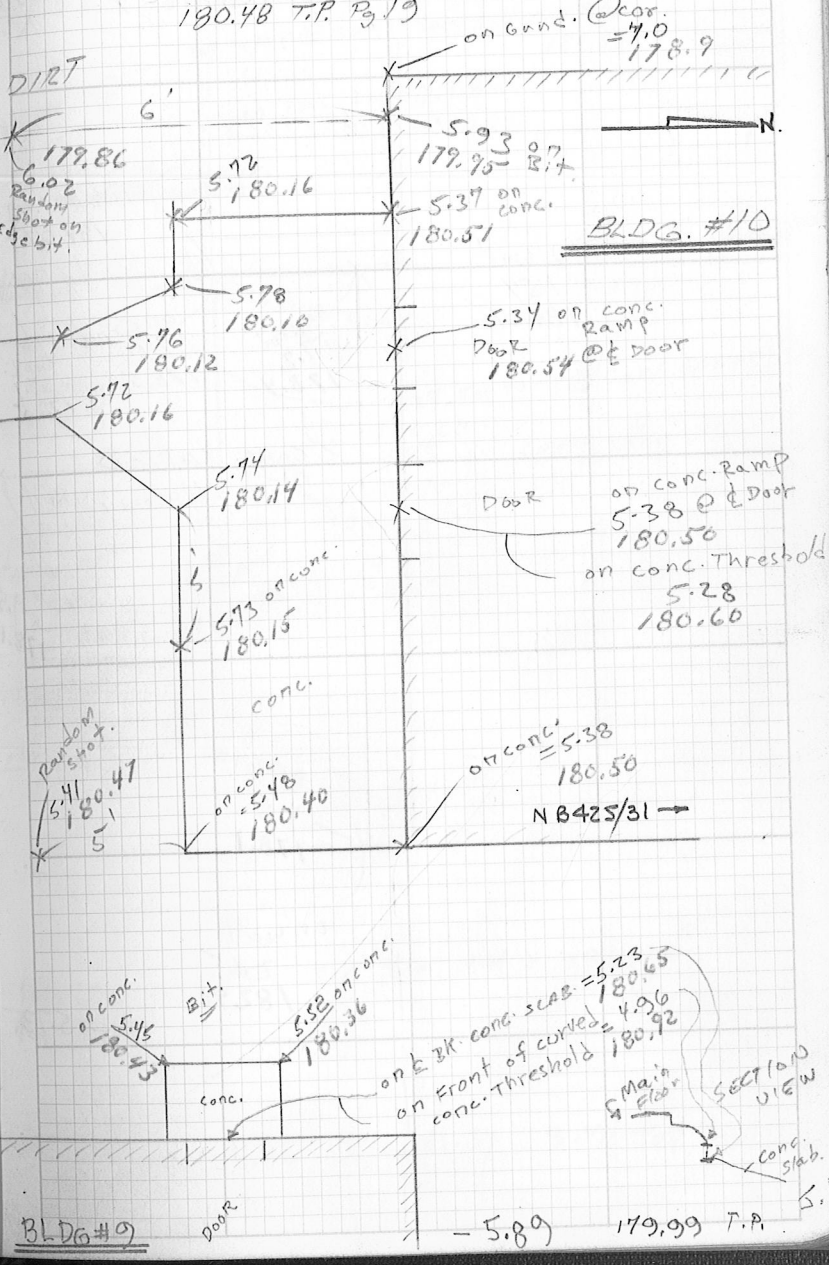 180.48 T.P. Pg 19
on Gund. @cor.
=7.0
178.9
DIRT
6'
179.86
6.02
Random
Shot on
Edge bit.
5.72
180.16
5.93 on
179.95 Bit.
N.
5.37 on
conc.
180.51
BLDG. #10
5.78
180.10
5.76
180.12
5.34 on conc.
Ramp
DOOR
180.54 @ ℄ Door
5.72
180.16
5.74
180.14
DOOR
on conc. Ramp
5.38 @ ℄ Door
180.50
on conc. Threshold
5.28
180.60
5.73 on conc.
180.15
conc.
Random
Shot.
5.41
180.47
5'
on conc.
=5.48
180.40
on conc.
=5.38
180.50
NB425/31
on conc.
5.45
180.43
Bit.
5.52 on conc.
180.36
conc.
on ℄ BK. conc. SLAB =5.23
180.65
on Front of curved = 4.96
conc. Threshold 180.92
Main
Floor
SECTION
VIEW
conc.
Slab.
BLDG #9
DOOR
-5.89 179.99 T.P.